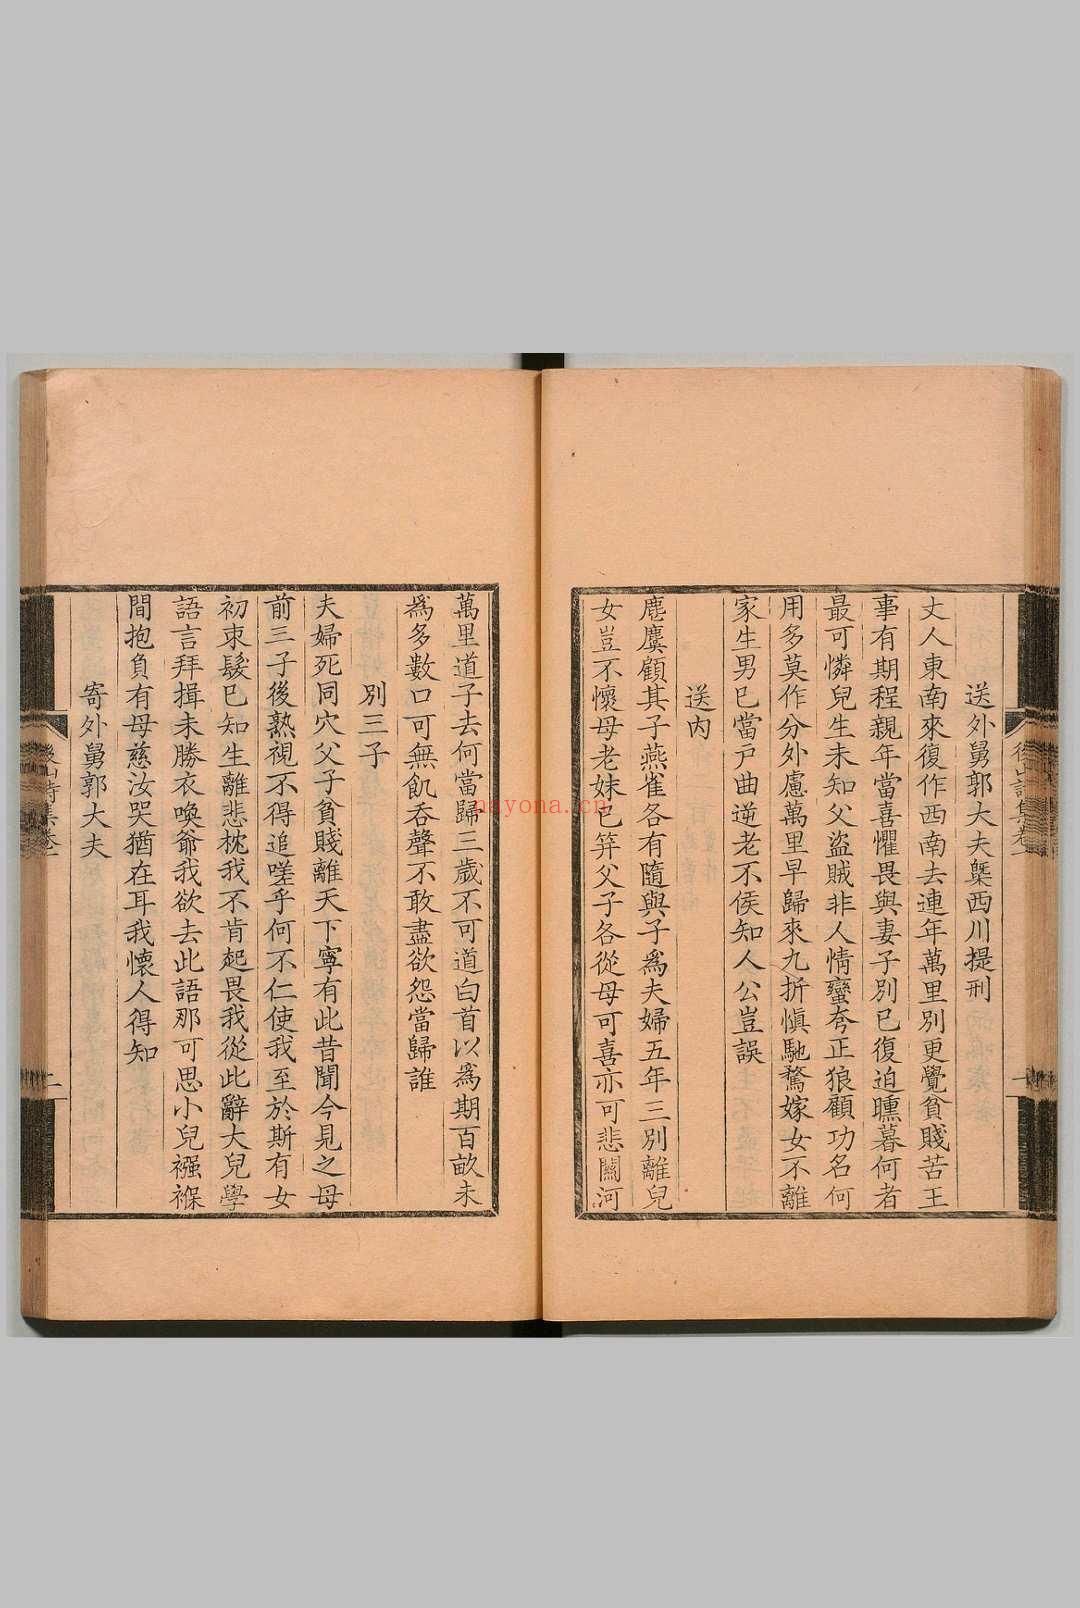 送外舅郭大夫槩西川提刑
丈人東南來復作西南去連年萬里別更覺貧賤苦王
事有期程親年當喜懼畏與妻子別已復迫曛暮何者
最可憐兒生未知父盜賊非人情蠻夸正狼顧功名何
用多莫作分外慮萬里早歸來九折慎馳騖嫁女不離
家生男已當戶曲逆老不侯知人公豈誤
送內
麀麌顧其子燕雀各有隨與子爲夫婦五年三別離兒
女豈不懷母老妹已筓父子各從母可喜亦可悲關河
萬里道子去何當歸三歲不可道白首以爲期百畝未
爲多數口可無飢吞聲不敢盡欲怨當歸誰
別三子
夫婦死同穴父子貧賤離天下寧有此昔聞今見之母
前三子後熟視不得追嗟乎何不仁使我至於斯有女
初束髮已知生離悲枕我不肯起畏我從此辭大兒學
語言拜揖未勝衣喚爺我欲去此語那可思小兒襁褓
間抱負有母慈汝哭猶在耳我懷人得知
寄外舅郭大夫
後山詩集卷一
一
後山詩集卷一
二
nayona.cn